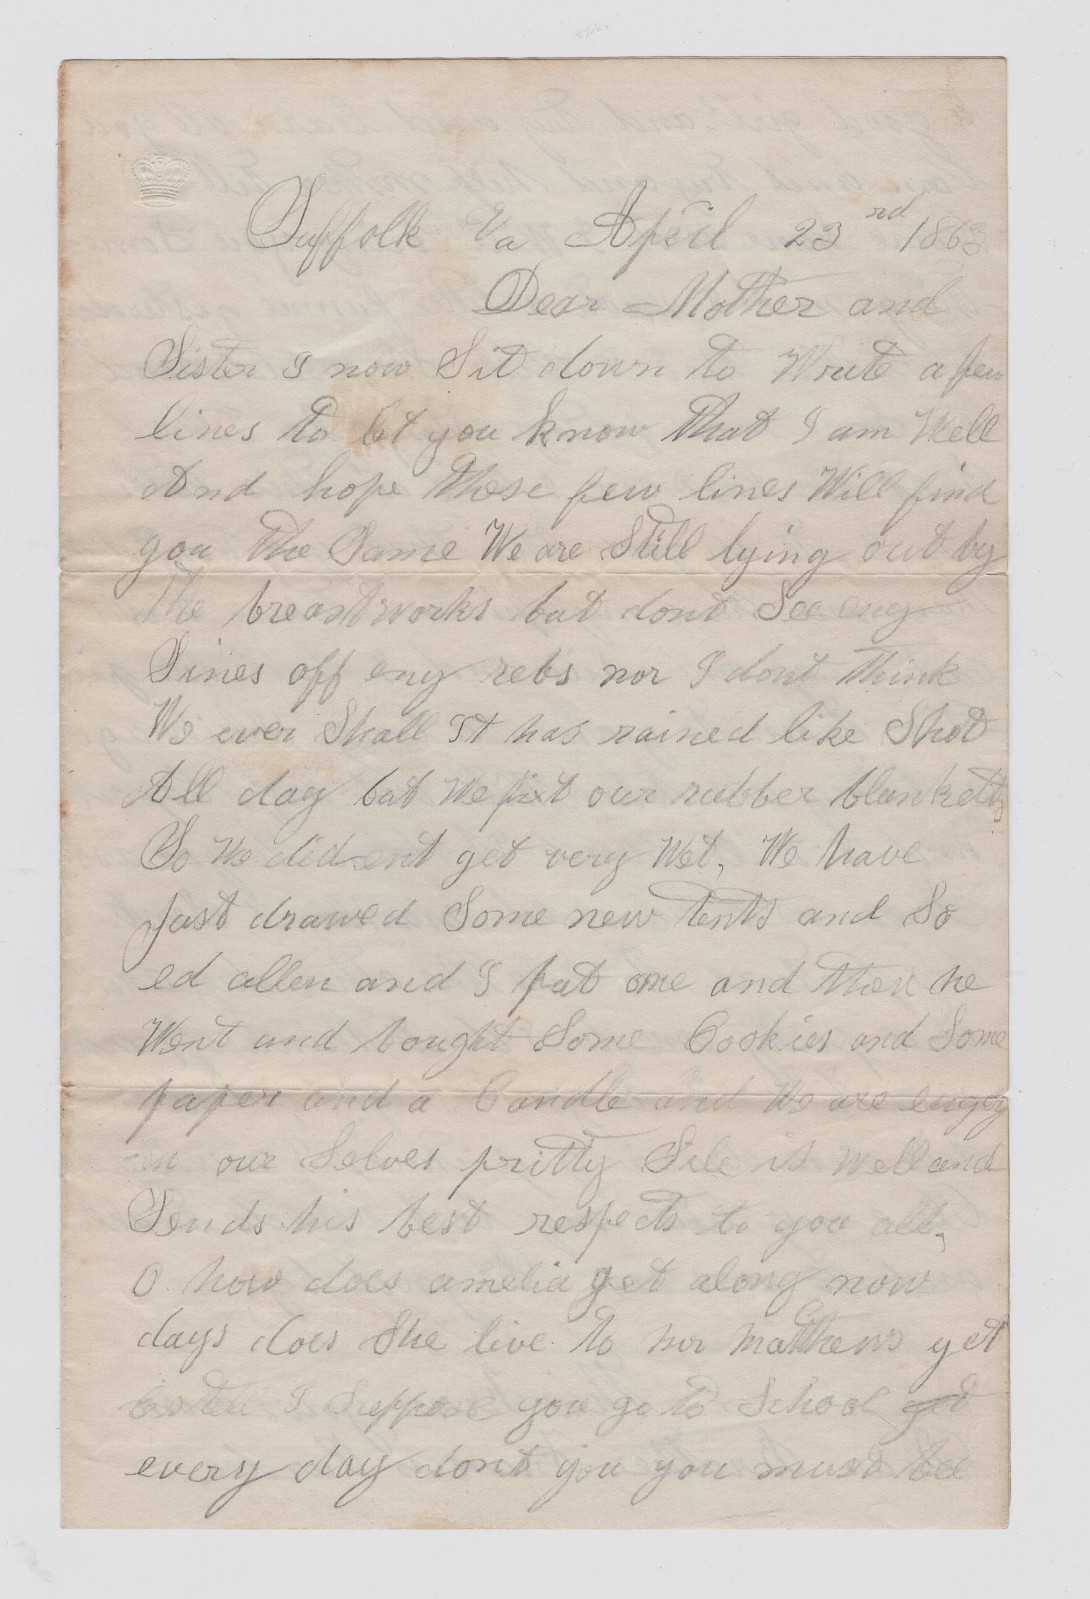 Suffolk Va April 23rd 1863
Dear Mother and
Sister I now Sit down to Write a few
lines to let you know that I am Well
And hope these few lines Will find
you the Same We are Still lying out by
the breastworks but dont See eny
Sines off eny rebs nor I dont think
We ever Shall It has rained like Shot
All day but We fixt our rubber blanketts
So We did ent get very Wet, We have
Just drawed Some new tents and So
ed allen and I put one and then he
Went and bought Some Cookies and Some
paper and a Candle and We are enjoy
in our Selves pritty Sile is Well and
Sends his best respects to you all,
O how does amelia get along now
days does She live to hor matthews yet
I Suppose you go to School
every day dont you you must be